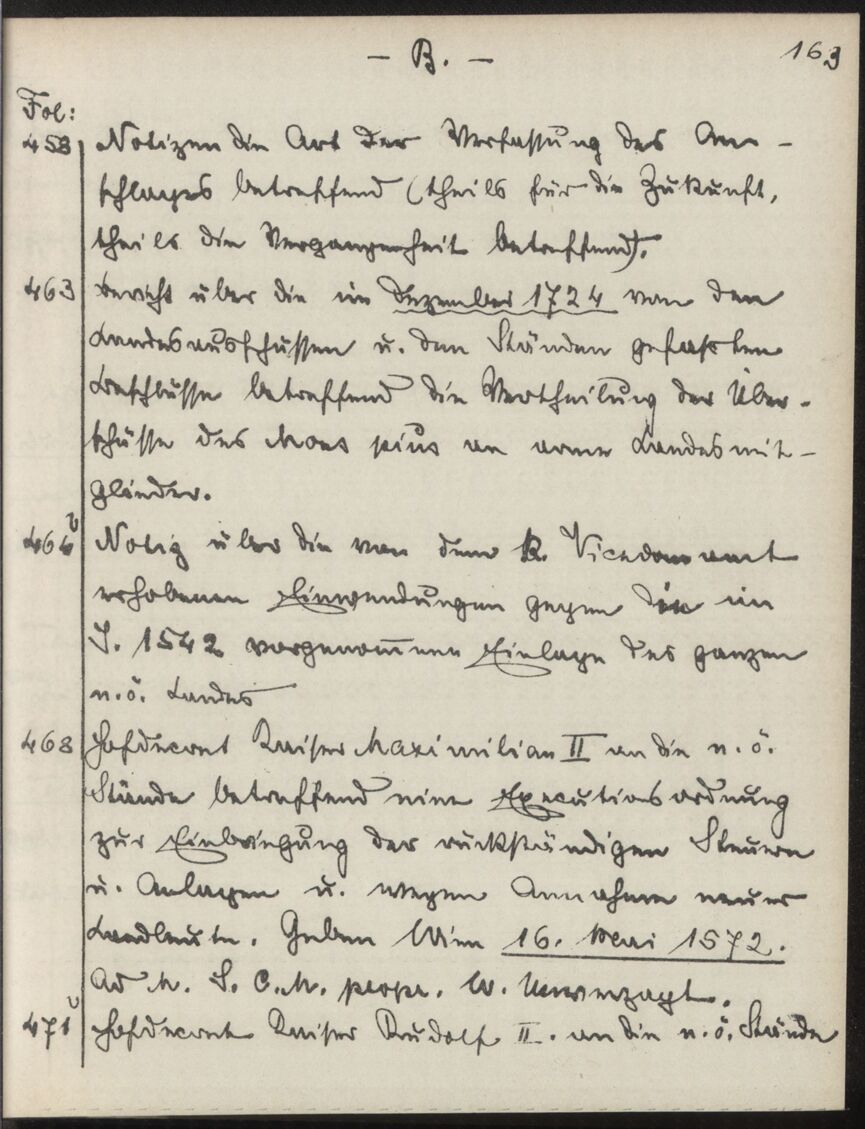 — B. —
163
Fol:
458 Notizen die Art der Verfassung des An-
schlages betreffend (theils für die Zukunft,
theils die Vergangenheit betreffend).
463 Bericht über die im Dezember 1724 von den
Landesausschüssen u. den Ständen gefassten
Beschlüsse betreffend die Vertheilung der Über-
schüsse des Mons pius an arme Landesmit-
glieder.
464v Notiz über die von dem k. Vicedomamt
erhobenen Einwendungen gegen die im
J. 1542 vorgenom̅enen Einlage des ganzen
n.ö. Landes
468 Hofdecret Kaiser Maximilian II an die n.ö.
Stände betreffend eine Executionsordnung
zur Einbringung der rückständigen Steuern
u. Anlagen u. wegen Annahme neuer
Landleute. Geben Wien 16. Mai 1572.
Ad M. S. C. M. propr. W. Unverzagt.
471v Hofdecret Kaiser Rudolf II. an die n.ö. Stände